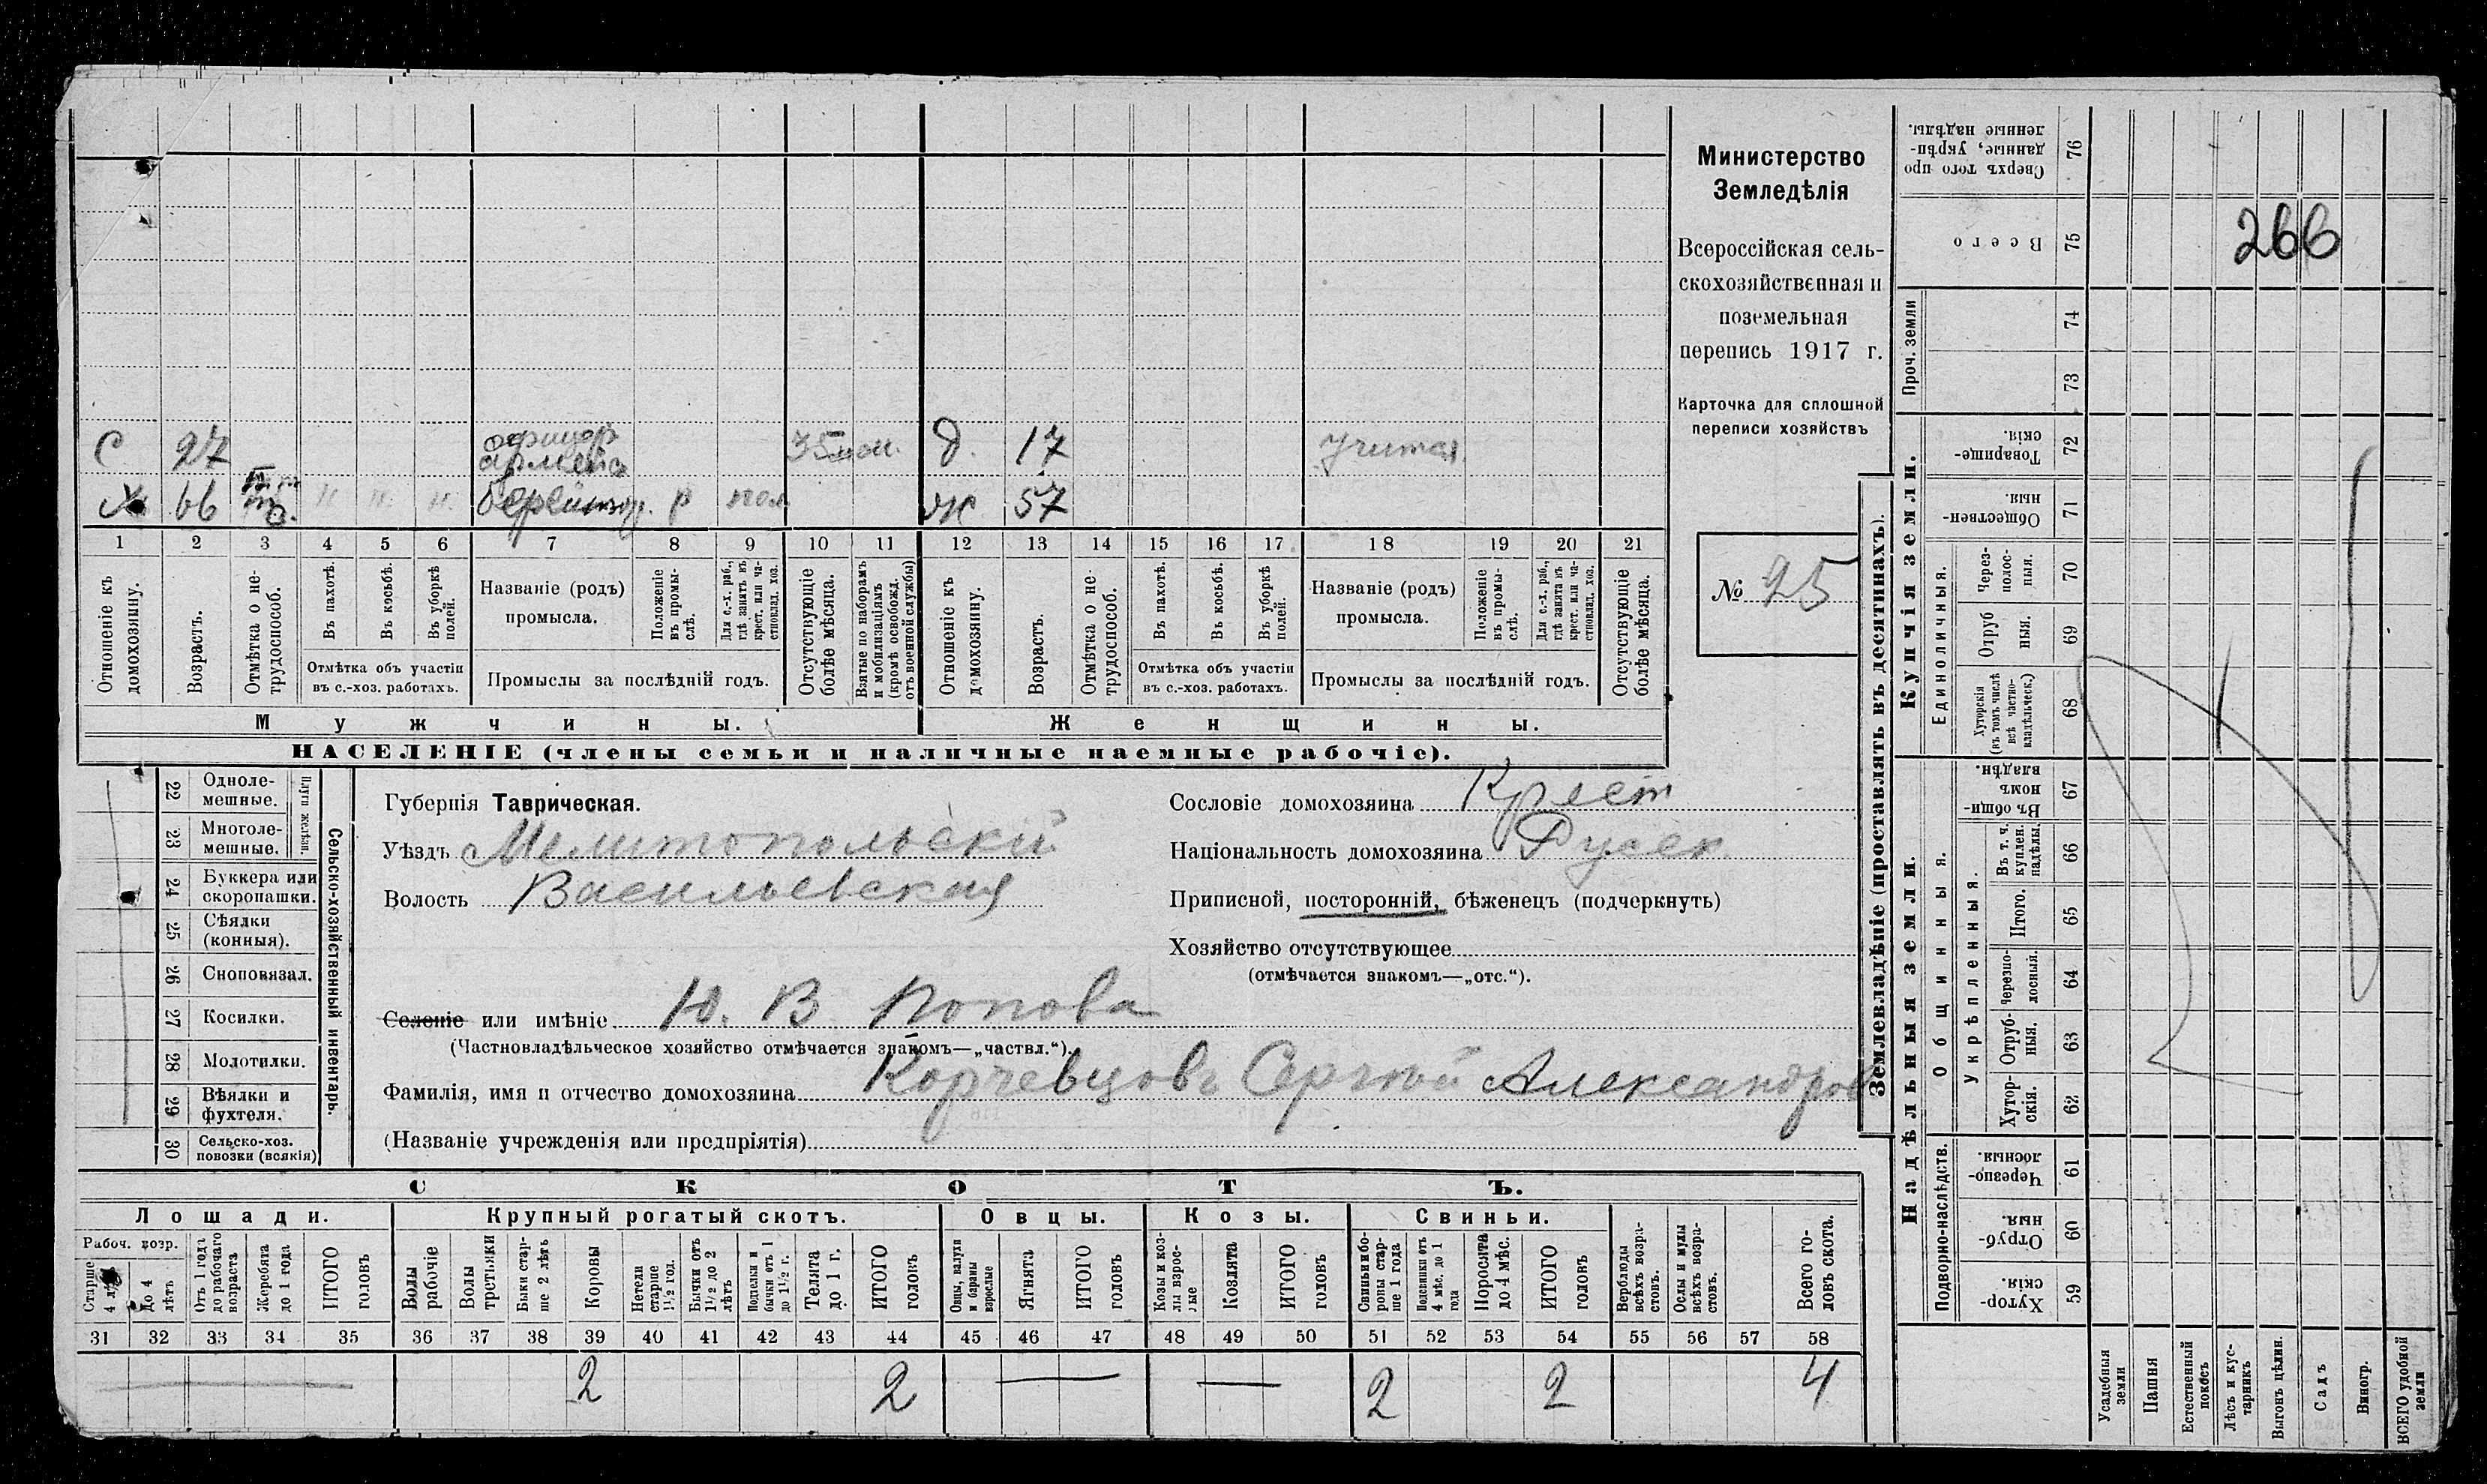 Министерство
Земледѣлія
Всероссійская сель-
скохозяйственная и
поземельная
перепись 1917 г.
Карточка для сплошной
переписи хозяйствъ
№ 25
266
С 27 офицер армейск 35 Д. 17 учится
Х 66 н. н. н. р Ж 57
1 2 3 4 5 6 7 8 9 10 11 12 13 14 15 16 17 18 19 20 21
Отношеніе къ домохозяину.
Возрастъ.
Отмѣтка о не-трудоспособ.
Въ пахотѣ.
Въ косьбѣ.
Въ уборкѣ полей.
Отмѣтка объ участіи
въ с.-хоз. работахъ.
Названіе (родъ)
промысла.
Положеніе въ промы-слѣ.
Для с.-х. раб., гдѣ занятъ въ крест. или ча-стновлад. хоз.
Промыслы за послѣдній годъ.
Отсутствующіе болѣе мѣсяца.
Взятые по наборамъ и мобилизаціямъ (кромѣ освобожд. отъ военной службы)
Отношеніе къ домохозяину.
Возрастъ.
Отмѣтка о не-трудоспособ.
Въ пахотѣ.
Въ косьбѣ.
Въ уборкѣ полей.
Отмѣтка объ участіи
въ с.-хоз. работахъ.
Названіе (родъ)
промысла.
Положеніе въ промы-слѣ.
Для с.-х. раб., гдѣ занятъ въ крест. или ча-стновлад. хоз.
Промыслы за послѣдній годъ.
Отсутствующіе болѣе мѣсяца.
Мужчины. Женщины.
НАСЕЛЕНІЕ (члены семьи и наличные наемные рабочіе).
Сельско-хозяйственный инвентарь.
Плуги желѣзн.
22 Одноле-мешные.
23 Многоле-мешные.
24 Буккера или скоропашки.
25 Сѣялки (конныя).
26 Сноповязал.
27 Косилки.
28 Молотилки.
29 Вѣялки и фухтеля.
30 Сельско-хоз. повозки (всякія)
Губернія Таврическая.
Уѣздъ Мелитопольскій
Волость Васильевская
Сословіе домохозяина Крест
Національность домохозяина Русск
Приписной, посторонній, бѣженецъ (подчеркнуть)
Хозяйство отсутствующее
(отмѣчается знакомъ—„отс.“).
Селеніе или имѣніе Ю. В Попова
(Частновладѣльческое хозяйство отмѣчается знакомъ—„частвл.“).
Фамилія, имя и отчество домохозяина Корчевцовъ Сергѣй Александров
(Названіе учрежденія или предпріятія)
СКОТЪ.
Лошади. Крупный рогатый скотъ. Овцы. Козы. Свиньи.
Рабоч. возр.
Старше 4 лѣтъ
До 4 лѣтъ
Отъ 1 года до рабочаго возраста
Жеребята до 1 года
ИТОГО головъ
Волы рабочіе
Волы третьяки
Быки стар-ше 2 лѣтъ
Коровы
Нетели старше 1½ год.
Бычки отъ 1½ до 2 лѣтъ
Подтелки и бычки отъ 1 до 1½ г.
Телята до 1 г.
ИТОГО головъ
Овцы, валухи и бараны взрослые
Ягнята
ИТОГО головъ
Козы и коз-лы взрос-лые
Козлята
ИТОГО головъ
Свиньи и бо-ровы стар-ше 1 года
Подсвинки отъ 4 мѣс. до 1 года
Поросята до 4 мѣс.
ИТОГО головъ
Верблюды всѣхъ возра-стовъ.
Ослы и мулы всѣхъ возра-стовъ.
Всего го-ловъ скота.
31 32 33 34 35 36 37 38 39 40 41 42 43 44 45 46 47 48 49 50 51 52 53 54 55 56 57 58
— 2 2 — — 2 2 4
Землевладѣніе (проставлять въ десятинахъ).
Купчія земли.
Надѣльныя земли.
Проч. земли
Единоличныя.
Общинныя.
Укрѣпленныя.
Подворно-наслѣдств.
76 Сверхъ того про-данные, укрѣп-ленные надѣлы.
75 Всего
74
73
72 Товарище-скія.
71 Обществен-ныя.
70 Через-полос-ныя.
69 Отруб ныя.
68 Хуторскія (въ томъ числѣ всѣ частно-владѣльческ.)
67 Въ общи-номъ владѣн.
66 Въ т. ч. куплен. надѣлы.
65 Итого.
64 Черезпо-лосныя.
63 Отруб-ныя.
62 Хутор-скія.
61 Черезпо-лосныя.
60 Отруб-ныя.
59 Хутор-скія.
Усадебныя земли
Пашня
Естественный покосъ
Лѣсъ и кус-тарникъ
Выгонъ цѣлин.
Садъ
Виногр.
ВСЕГО удобной земли